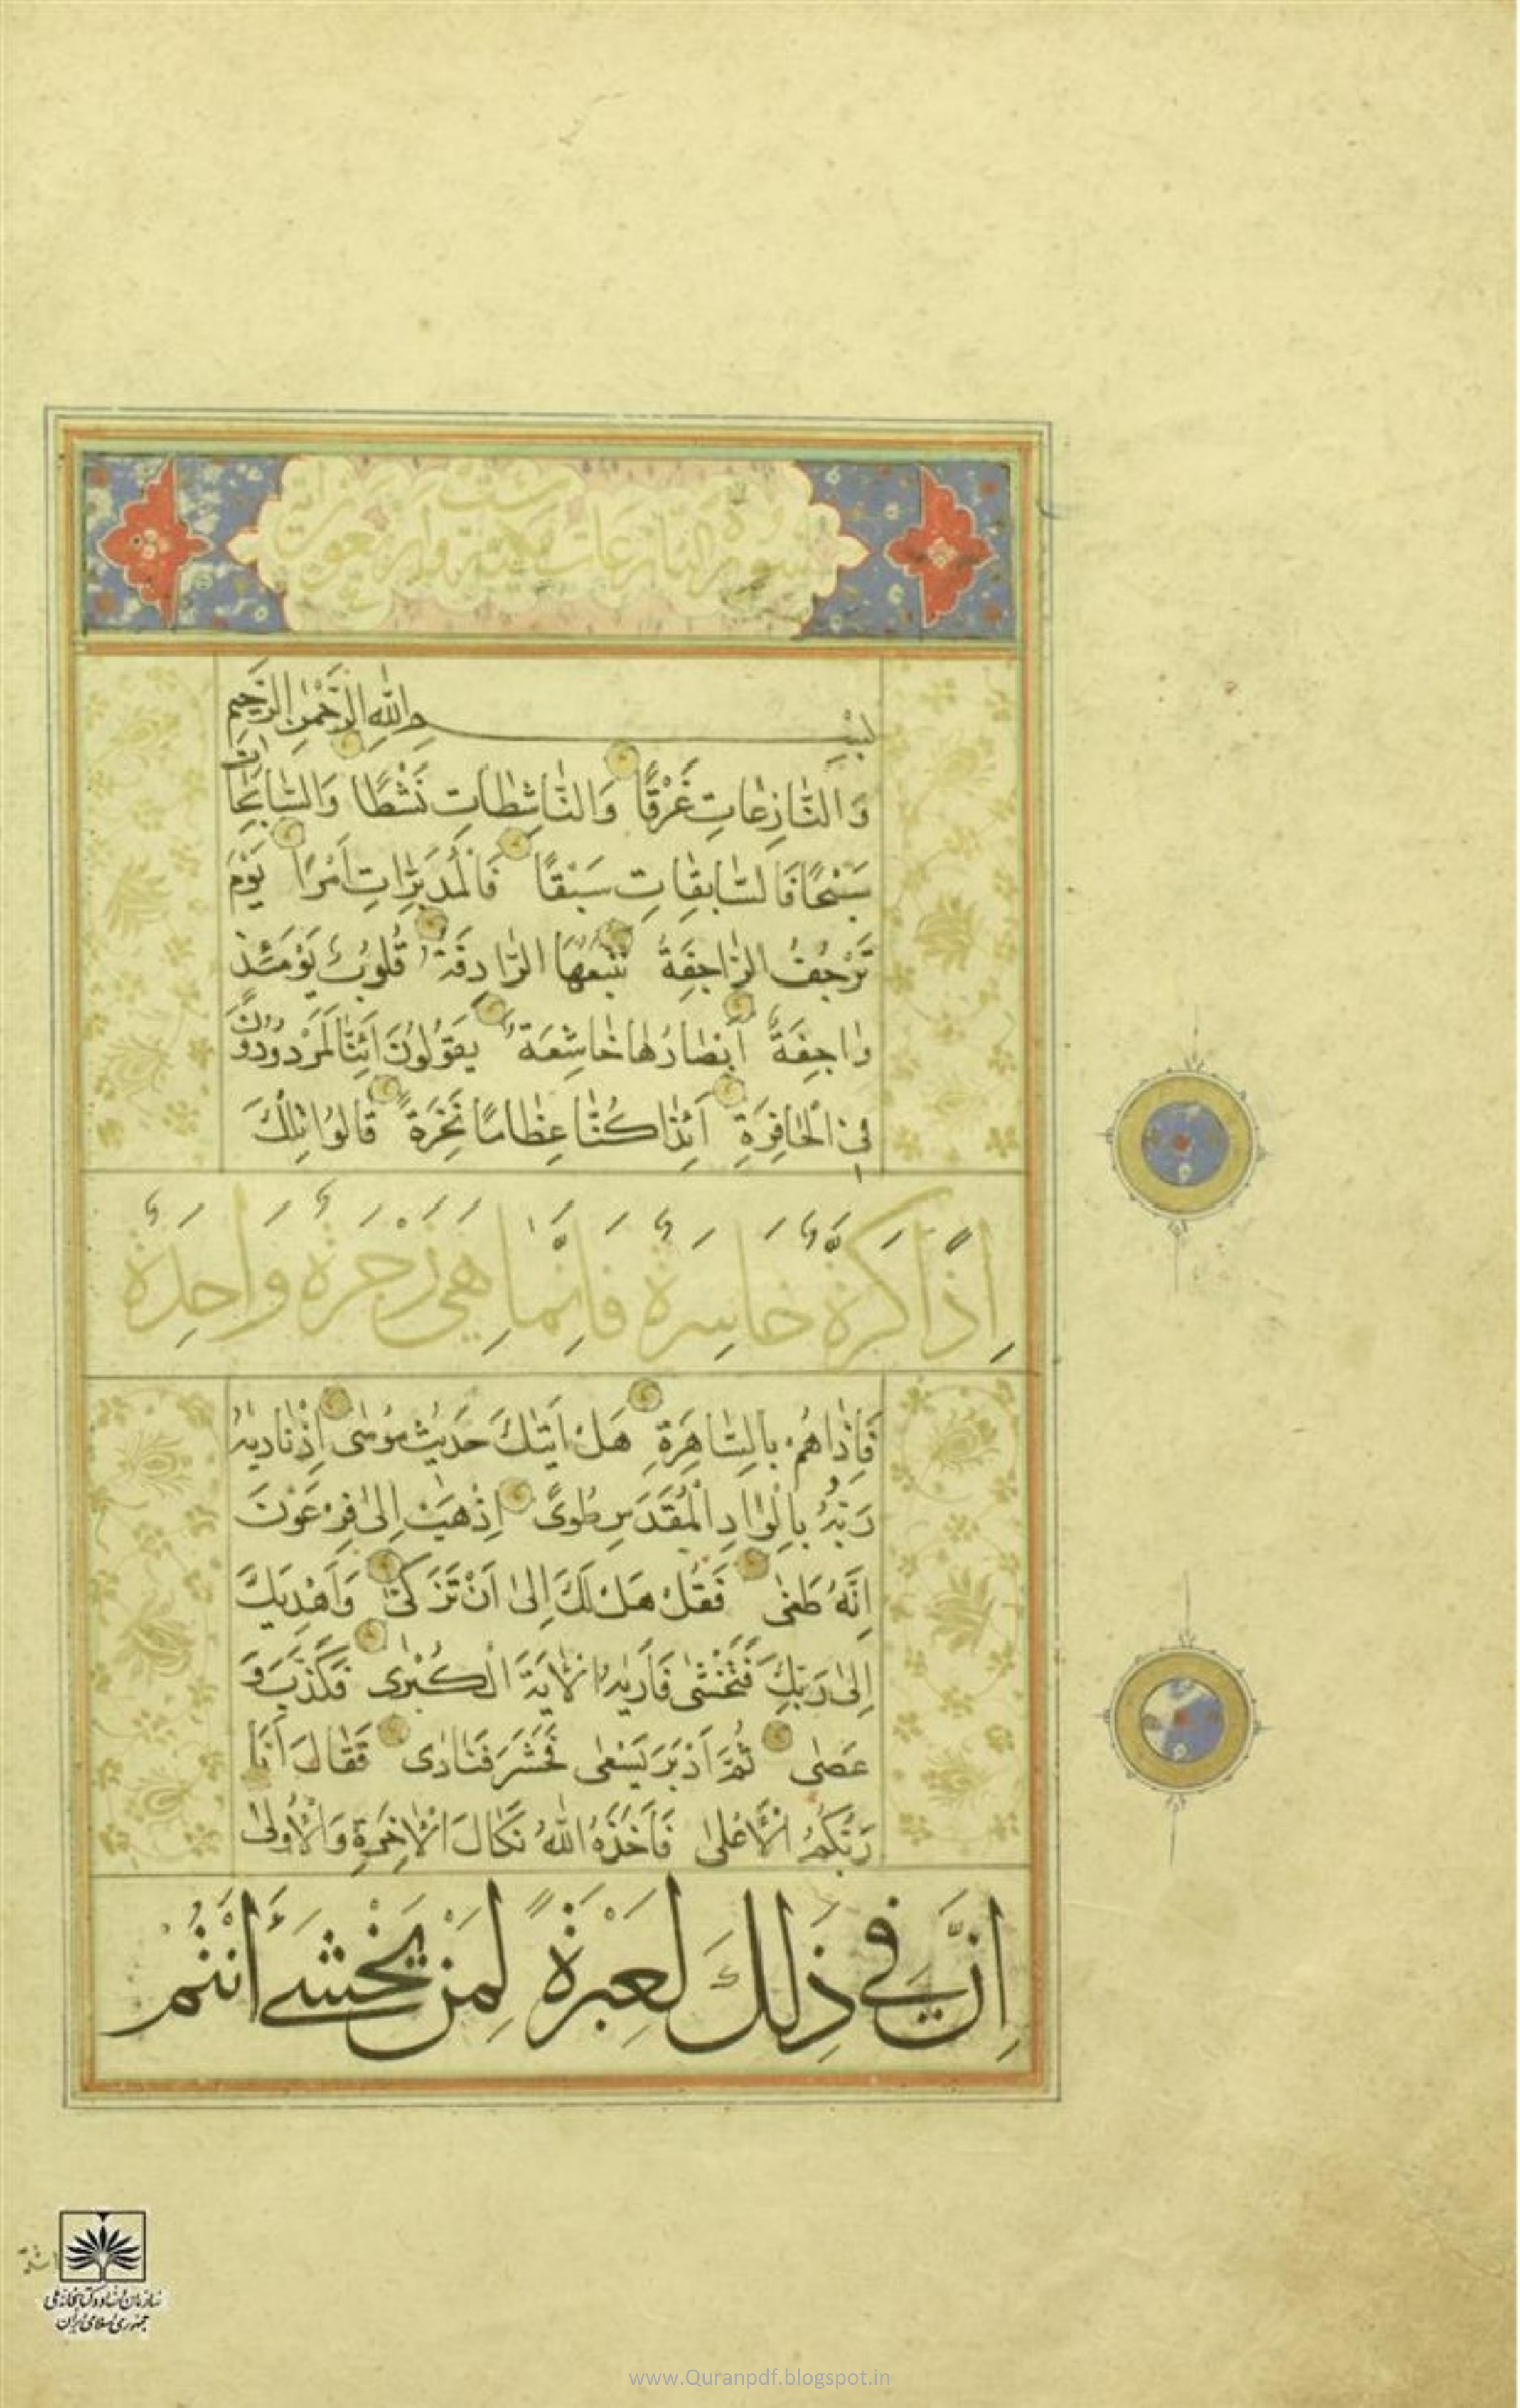 سورة النازعات ست و اربعون اية
بِسْمِ اللّٰهِ الرَّحْمٰنِ الرَّحِيمِ
وَالنَّازِعَاتِ غَرْقًا وَالنَّاشِطَاتِ نَشْطًا وَالسَّابِحَاتِ
سَبْحًا فَالسَّابِقَاتِ سَبْقًا فَالْمُدَبِّرَاتِ اَمْرًا يَوْمَ
تَرْجُفُ الرَّاجِفَةُ تَتْبَعُهَا الرَّادِفَةُ قُلُوبٌ يَوْمَئِذٍ
وَاجِفَةٌ اَبْصَارُهَا خَاشِعَةٌ يَقُولُونَ اَئِنَّا لَمَرْدُودُونَ
فِي الْحَافِرَةِ اَئِذَا كُنَّا عِظَامًا نَخِرَةً قَالُوا تِلْكَ
اِذًا كَرَّةٌ خَاسِرَةٌ فَاِنَّمَا هِيَ زَجْرَةٌ وَاحِدَةٌ
فَاِذَا هُمْ بِالسَّاهِرَةِ هَلْ اَتٰيكَ حَدِيثُ مُوسٰى اِذْ نَادٰيهُ
رَبُّهُ بِالْوَادِ الْمُقَدَّسِ طُوًى اِذْهَبْ اِلٰى فِرْعَوْنَ
اِنَّهُ طَغٰى فَقُلْ هَلْ لَكَ اِلٰى اَنْ تَزَكّٰى وَاَهْدِيَكَ
اِلٰى رَبِّكَ فَتَخْشٰى فَاَرٰيهُ الْاٰيَةَ الْكُبْرٰى فَكَذَّبَ وَ
عَصٰى ثُمَّ اَدْبَرَ يَسْعٰى فَحَشَرَ فَنَادٰى فَقَالَ اَنَا
رَبُّكُمُ الْاَعْلٰى فَاَخَذَهُ اللّٰهُ نَكَالَ الْاٰخِرَةِ وَالْاُولٰى
اِنَّ فِي ذٰلِكَ لَعِبْرَةً لِمَنْ يَخْشٰى ءَاَنْتُمْ
سازمان اسناد و کتابخانه ملی
جمهوری اسلامی ایران
www.Quranpdf.blogspot.in